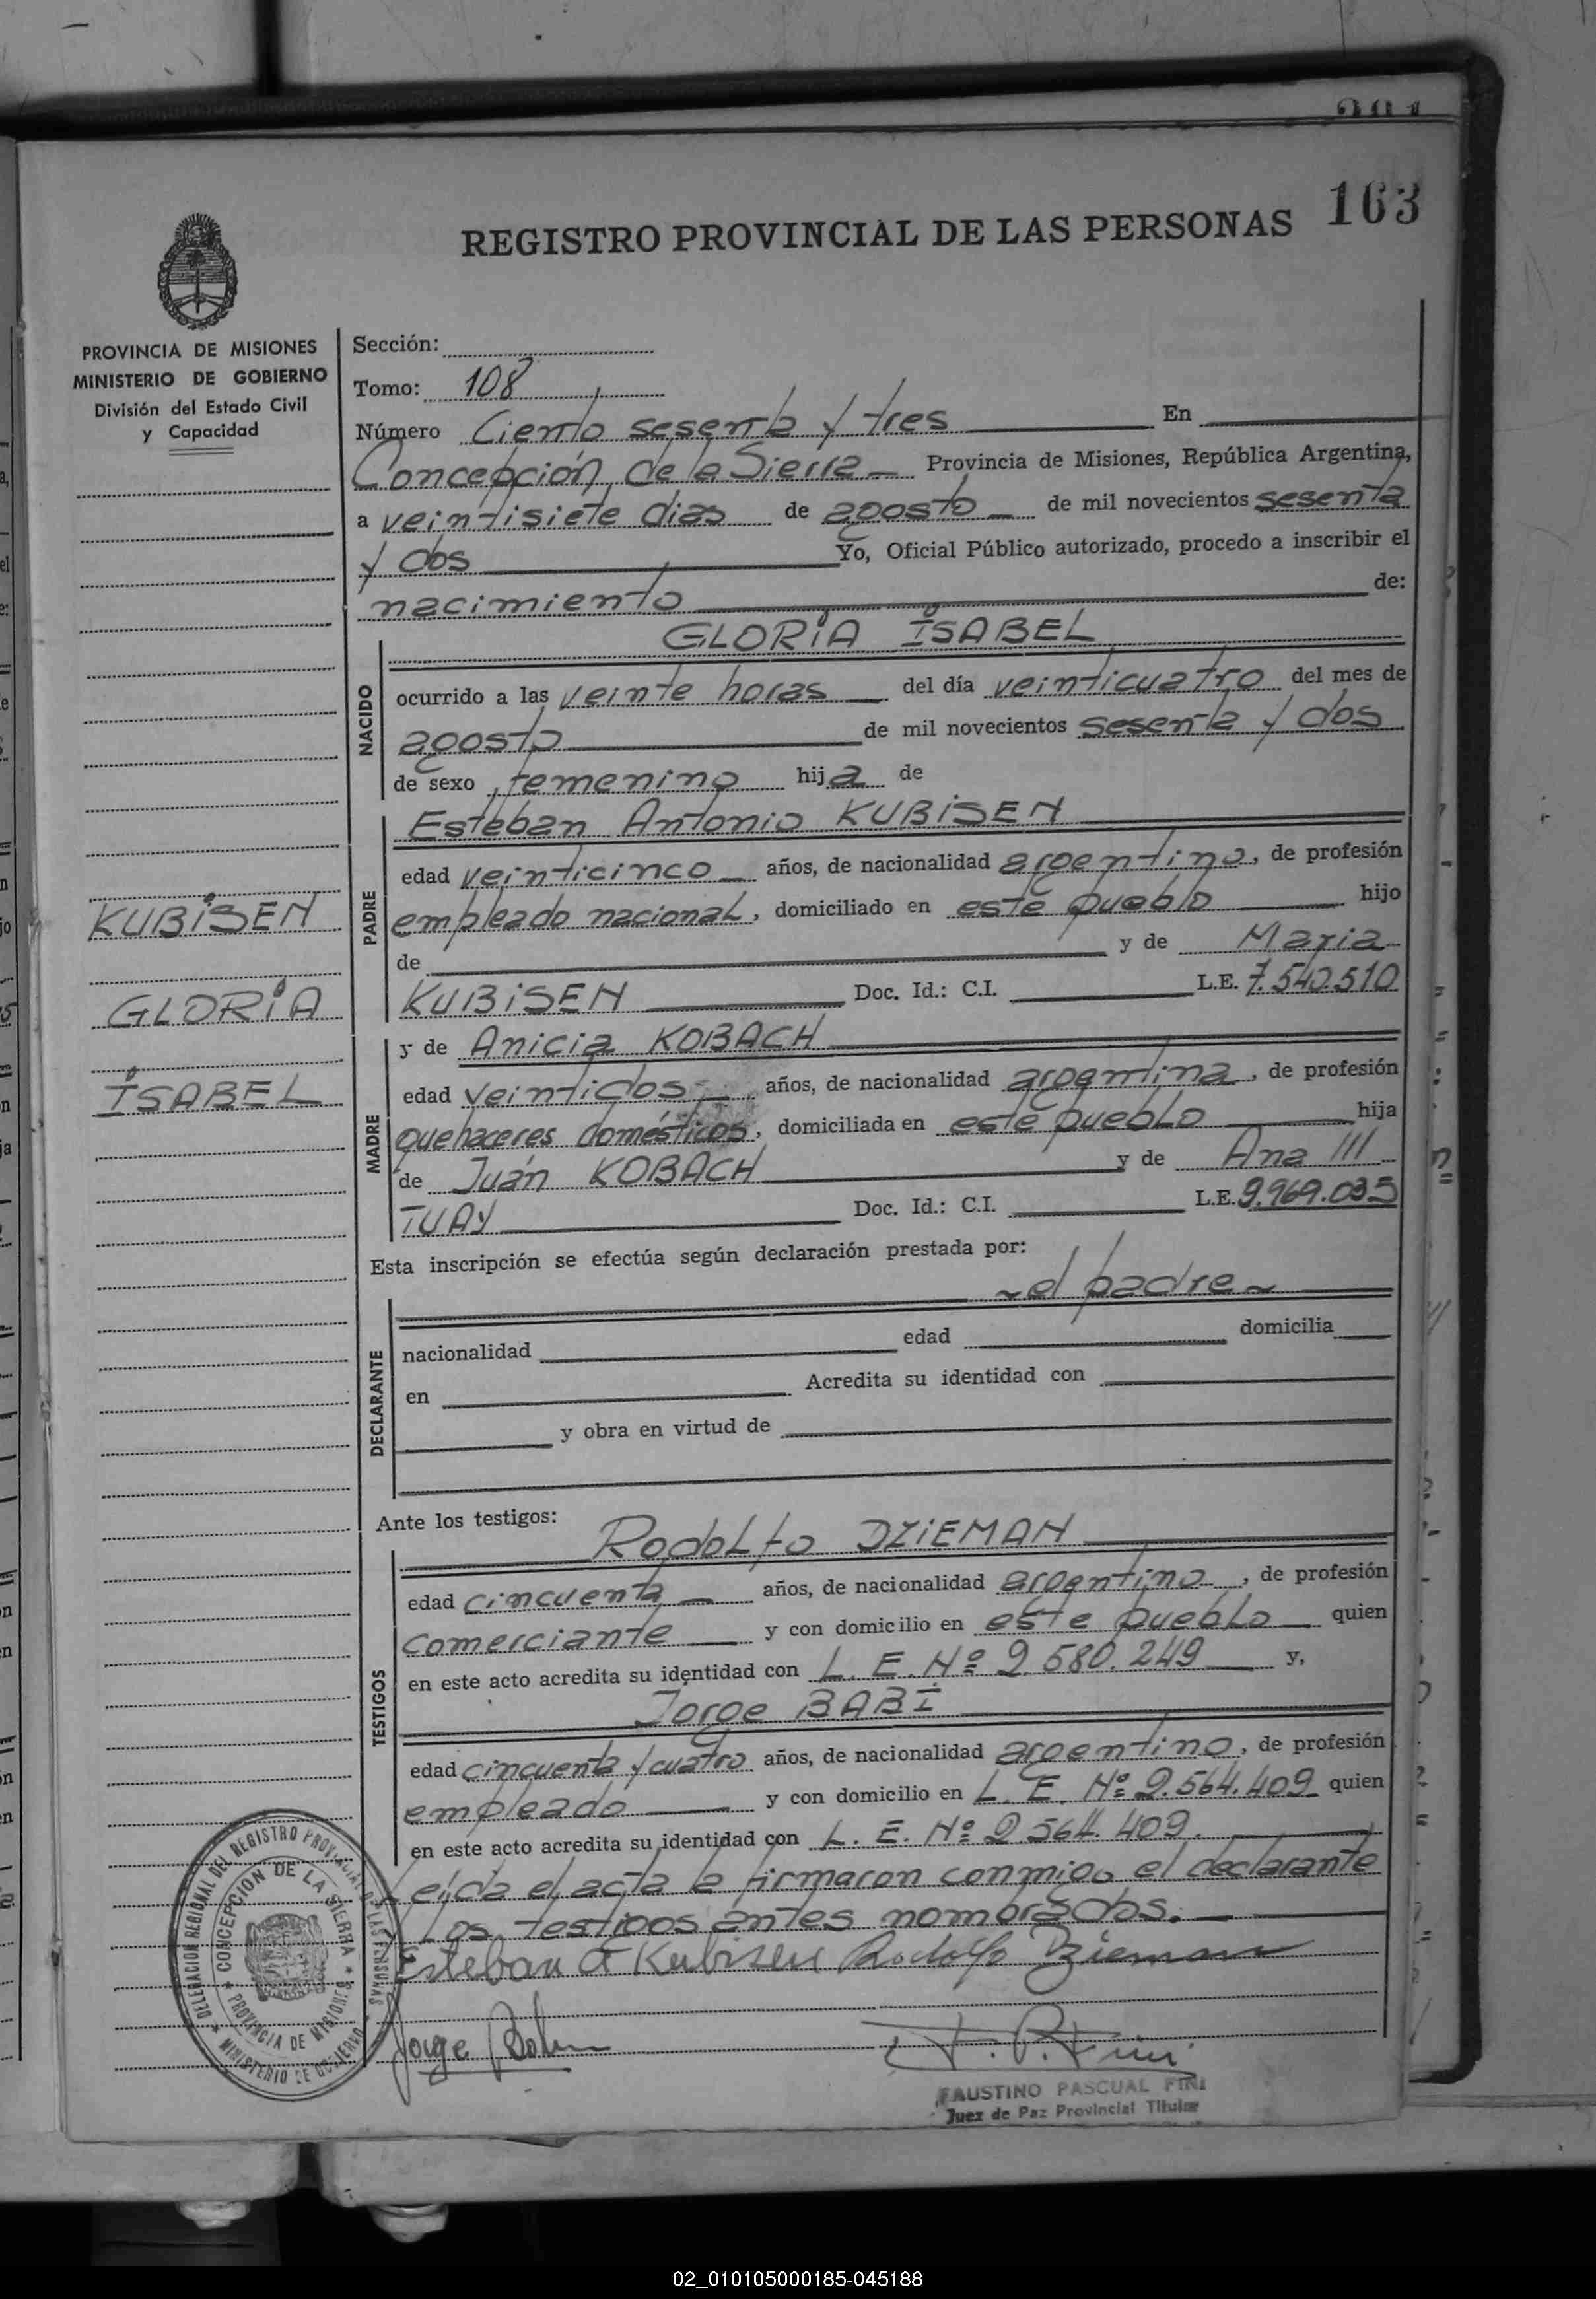 163
REGISTRO PROVINCIAL DE LAS PERSONAS
PROVINCIA DE MISIONES
MINISTERIO DE GOBIERNO
División del Estado Civil
y Capacidad
Sección:
Tomo: 108
Número Ciento sesenta y tres En
Concepción de la Sierra Provincia de Misiones, República Argentina,
a veintisiete dias de agosto de mil novecientos sesenta
y dos Yo, Oficial Público autorizado, procedo a inscribir el
nacimiento de:
GLORIA ISABEL
NACIDO
ocurrido a las veinte horas del día veinticuatro del mes de
agosto de mil novecientos sesenta y dos
de sexo femenino hija de
Esteban Antonio KUBISEN
PADRE
edad veinticinco años, de nacionalidad argentino, de profesión
empleado nacional, domiciliado en este pueblo hijo
de y de Maria
KUBISEN Doc. Id.: C.I. L.E. 7.540.510
KUBISEN
GLORIA
ISABEL
y de Anicia KOBACH
MADRE
edad veintidos años, de nacionalidad argentina, de profesión
quehaceres domésticos, domiciliada en este pueblo hija
de Juán KOBACH y de Ana ///
TUAY Doc. Id.: C.I. L.E. 9.969.035
Esta inscripción se efectúa según declaración prestada por:
~ el padre ~
DECLARANTE
nacionalidad edad domicilia
en Acredita su identidad con
y obra en virtud de
Ante los testigos:
Rodolfo DZIEMAN
TESTIGOS
edad cincuenta años, de nacionalidad argentino, de profesión
comerciante y con domicilio en este pueblo quien
en este acto acredita su identidad con L. E. Nº 2.580.249 y,
Jorge BABI
edad cincuenta y cuatro años, de nacionalidad argentino, de profesión
empleado y con domicilio en L. E. Nº 2.564.409 quien
en este acto acredita su identidad con L. E. Nº 2.564.409.
Leída el acta la firmaron conmigo el declarante
Los testigos antes nombrados.
Esteban A Kubisen Rodolfo Dzieman
Jorge
F. P. Fini
FAUSTINO PASCUAL FINI
Juez de Paz Provincial Titular
DELEGACION REGIONAL DEL REGISTRO PROVINCIAL DE LAS PERSONAS
MINISTERIO DE GOBIERNO
CONCEPCION DE LA SIERRA
PROVINCIA DE MISIONES
02_010105000185-045188